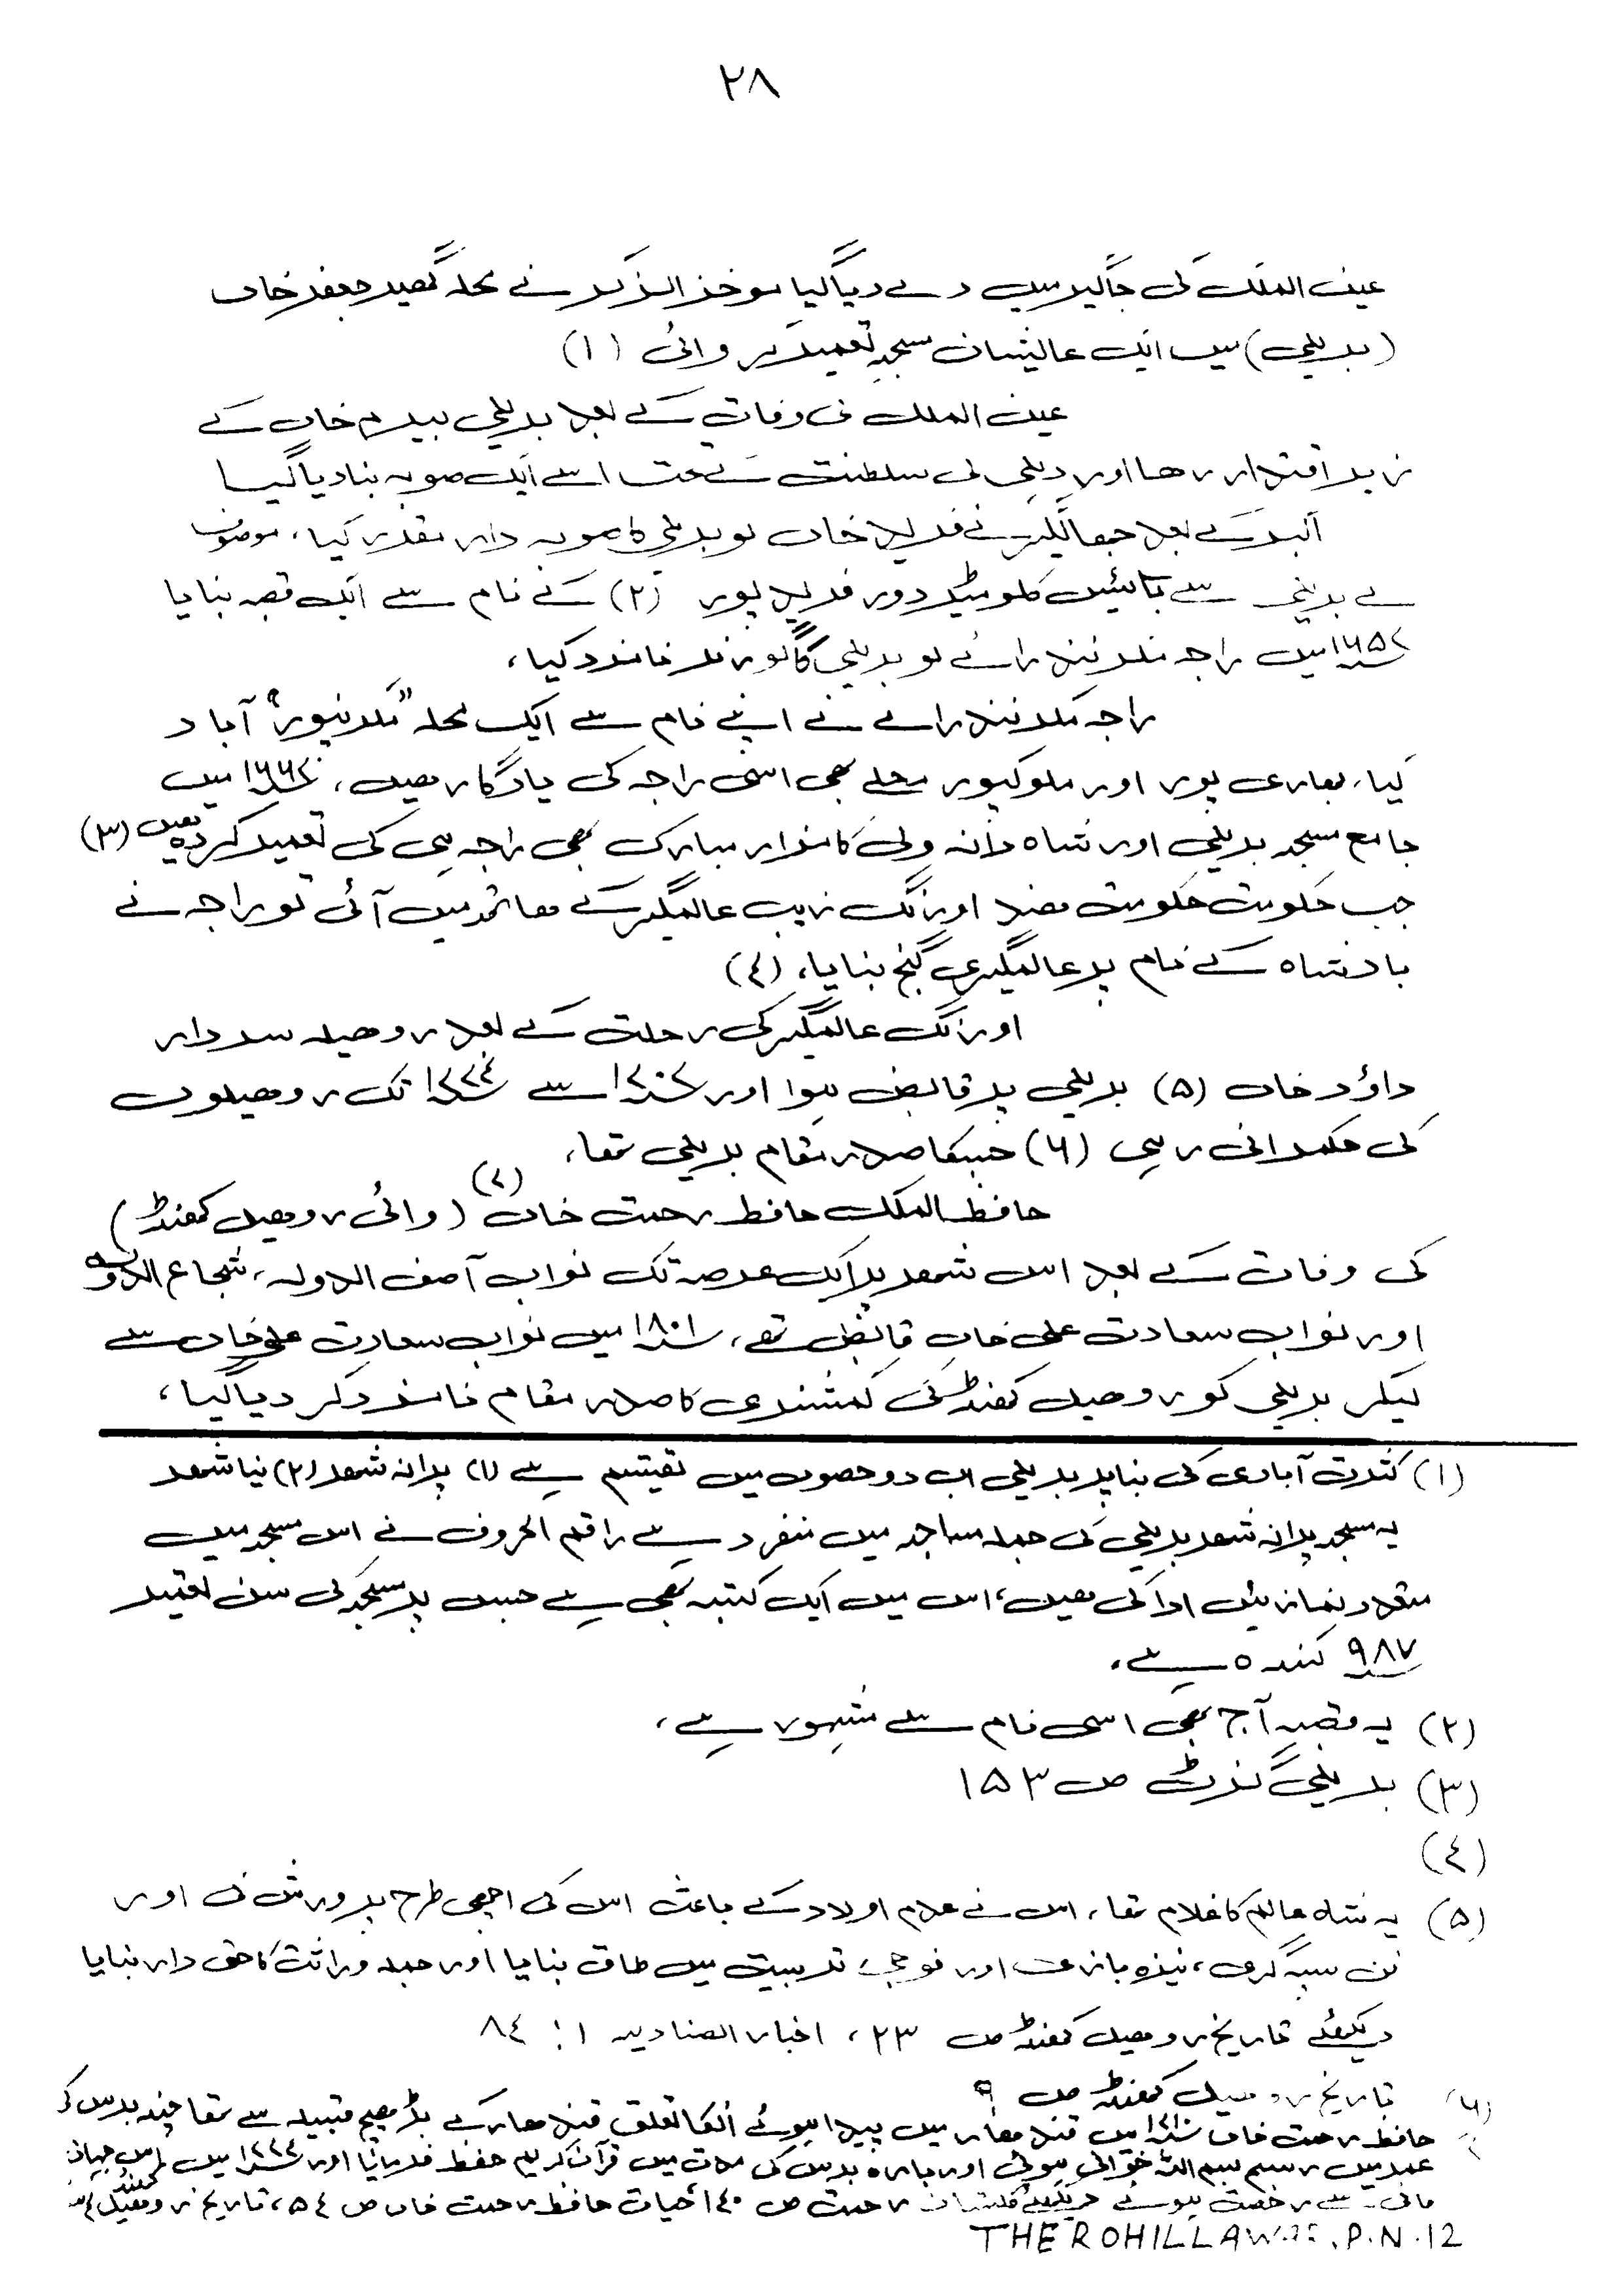 ۲۸
عین الملک کی جاگیر میں دے دیا گیا موخر الذکر نے محلہ گھیر جعفر خاں
(بریلی) میں ایک عالیشان مسجد تعمیر کروائی (۱)
عین الملک کی وفات کے بعد بریلی بیرم خاں کے
زیر اقتدار رہا اور دہلی کی سلطنت کے تحت اسے ایک صوبہ بنا دیا گیا
اکبر کے بعد جہانگیر نے فرید خاں کو بریلی کا صوبہ دار مقرر کیا، موصوف
نے بریلی سے بائیس کلومیٹر دور فرید پور (۲) کے نام سے ایک قصبہ بنایا
۱۶۵۷ میں راجہ مکرند رائے کو بریلی کا گورنر نامزد کیا،
راجہ مکرند رائے نے اپنے نام سے ایک محلہ "مکرندپور" آباد
کیا، بہاری پور اور ملوکپور محلے بھی اسی راجہ کی یادگار ہیں، ۱۶۶۷ میں
جامع مسجد بریلی اور شاہ دانہ ولی کا مزار مبارک بھی راجہ ہی کی تعمیر کردہ ہیں (۳)
جب حکومت حکومت ہند اورنگ زیب عالمگیر کے ہاتھ میں آئی تو راجہ نے
بادشاہ کے نام پر عالمگیری گنج بنایا، (٤)
اورنگ عالمگیر کی رحلت کے بعد روہیلہ سردار
داؤد خاں (۵) بریلی پر قابض ہوا اور ۱۷۰۷ سے ۱۷۷٤ تک روہیلوں
کی حکمرانی رہی (۶) جسکا صدر مقام بریلی تھا،
حافظ الملک حافظ رحمت خاں (۷) (والی روہیل کھنڈ)
کی وفات کے بعد اس شہر پر ایک عرصہ تک نواب آصف الدولہ، شجاع الدولہ
اور نواب سعادت علی خاں قابض تھے، ۱۸۰۱ میں نواب سعادت علی خاں سے
لیکر بریلی کو روہیل کھنڈ کی کمشنری کا صدر مقام نامزد کر دیا گیا،
(۱) کثرت آبادی کی بنا پر بریلی اب دو حصوں میں تقسیم ہے (۱) پرانہ شہر (۲) نیا شہر
یہ مسجد پرانہ شہر بریلی کی جملہ مساجد میں منفرد ہے راقم الحروف نے اس مسجد میں
متعدد نمازیں ادا کی ہیں، اس میں ایک کتبہ بھی ہے جس پر مسجد کی سن تعمیر
۹۸۷ کندہ ہے،
(۲) یہ قصبہ آج بھی اسی نام سے مشہور ہے،
(۳) بریلی گزٹ ص ۱۵۳
(٤)
(۵) یہ شاہ عالم کا غلام تھا، اس نے عدم اولاد کے باعث اس کی اچھی طرح پرورش کی اور
فن سپہ گری، نیزہ بازی اور فوجی تربیت میں طاق بنایا اور جملہ وراثت کا حق دار بنایا
دیکھئے تاریخ روہیل کھنڈ ص ۲۳، اخبار الصنادید ۱: ۸٤
(۶) تاریخ روہیل کھنڈ ص ۹
۷ حافظ رحمت خاں ۱۷۱۰ میں قندھار میں پیدا ہوئے انکا تعلق قندھار کے بڑھیچ قبیلہ سے تھا چند برس کی
عمر میں رسم بسم اللہ خوانی ہوئی اور بارہ برس کی مدت میں قرآن کریم حفظ فرمایا اور ۱۷۷٤ میں اس جہان
فانی سے رخصت ہوئے دیکھئے گلستان رحمت ص ۱۴۰ حیات حافظ رحمت خاں ص ۵٤، تاریخ روہیل کھنڈ
THE ROHILLA WAR, P.N.12